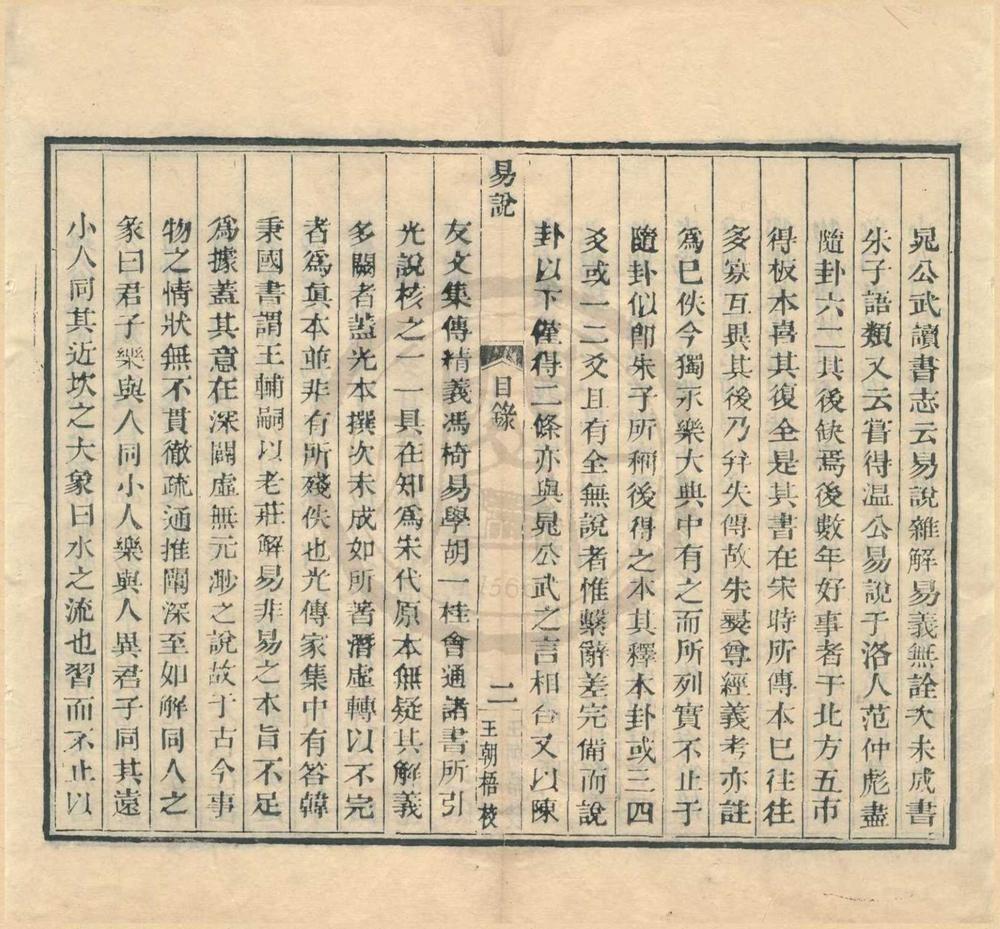 晁公武讀書志云易說雜解易義無詮次未成書
朱子語類又云嘗得温公易說于洛人范仲彪盡
隨卦六二其後缺焉後數年好事者于北方互市
得板本喜其復全是其書在宋時所傳本已往往
多寡互異其後乃并失傳故朱彝尊經義考亦註
為已佚今獨永樂大典中有之而所列實不止于
隨卦似卽朱子所稱後得之本其釋本卦或三四
爻或一二爻且有全無說者惟繫辭差完備而說
卦以下僅得二條亦與晁公武之言相合又以陳
易說
目錄
二
王朝梧校
友文集傳精義馮椅易學胡一桂會通諸書所引
光說核之一一具在知為宋代原本無疑其解義
多闕者葢光本撰次未成如所著潛虛轉以不完
者為真本並非有所殘佚也光傳家集中有答韓
秉國書謂王輔嗣以老莊解易非易之本旨不足
為據葢其意在深闢虛無元渺之說故于古今事
物之情狀無不貫徹疏通推闡深至如解同人之
彖曰君子樂與人同小人樂與人異君子同其遠
小人同其近坎之大象曰水之流也習而不止以